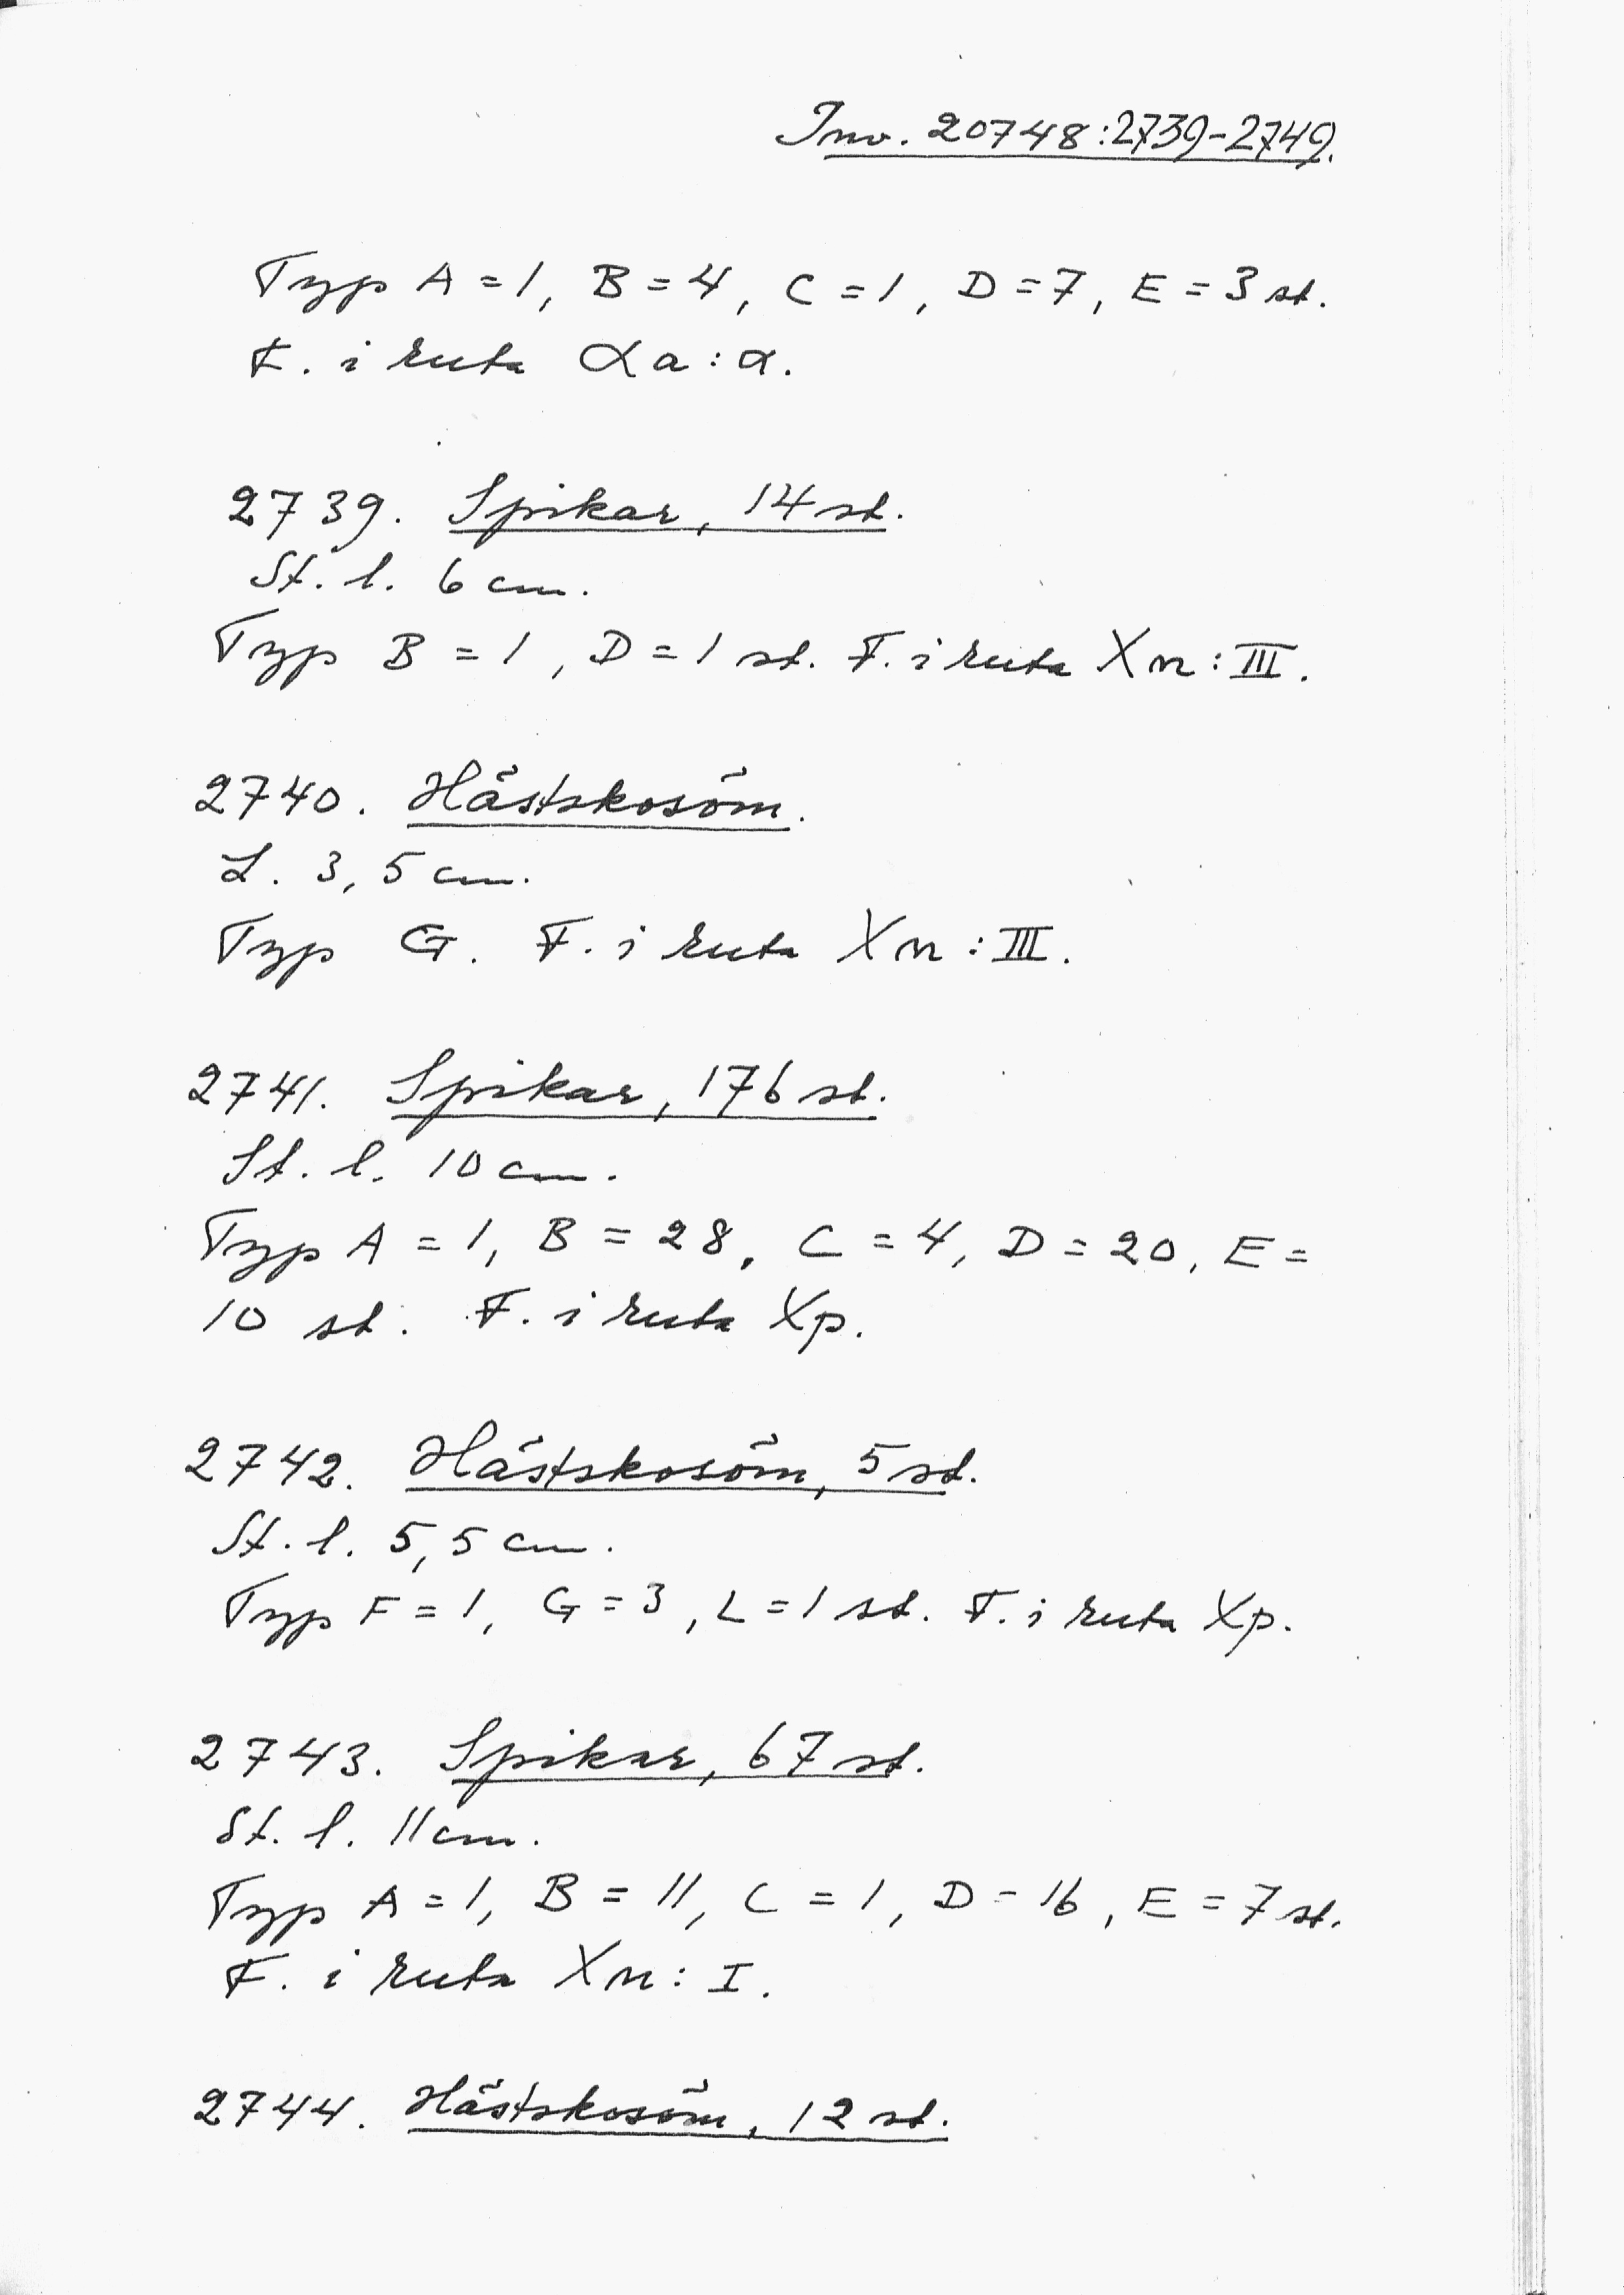 Inv. 20748:2739-2749.
Typ A = 1, B = 4, C = 1, D = 7, E = 3 st.
F. i ruta αa:α.
2739. Spikar, 14 st.
St. l. 6 cm.
Typ B = 1, D = 1 st. F. i ruta Xn:III.
2740. Hästskosöm.
L. 3,5 cm.
Typ G. F. i ruta Xn:III.
2741. Spikar, 176 st.
St. l. 10 cm.
Typ A = 1, B = 28, C = 4, D = 20, E =
10 st. F. i ruta Xp.
2742. Hästskosöm, 5 st.
St. l. 5,5 cm.
Typ F = 1, G = 3, L = 1 st. F. i ruta Xp.
2743. Spikar, 67 st.
St. l. 11 cm.
Typ A = 1, B = 11, C = 1, D = 16, E = 7 st.
F. i ruta Xn: I.
2744. Hästskosöm, 12 st.